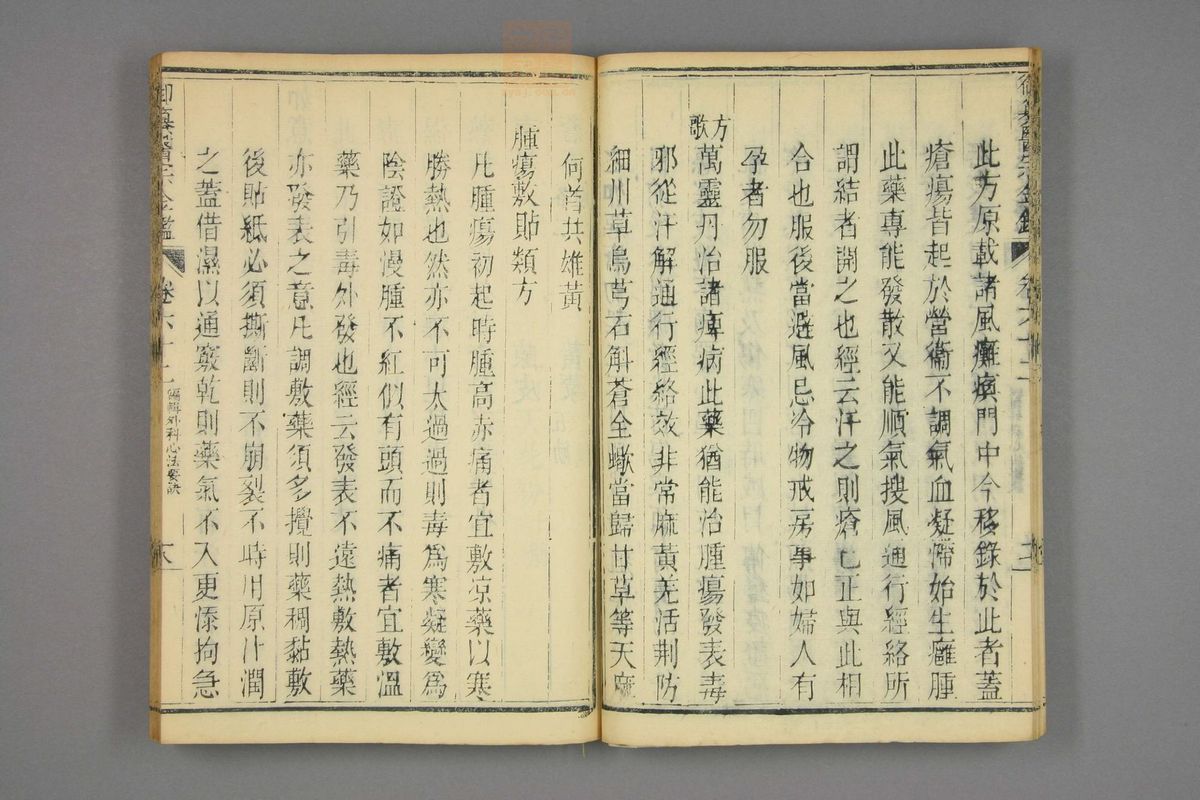 此方原載諸風癱瘓門中今移錄於此者蓋
瘡瘍皆起於營衞不調氣血凝滯始生癰腫
此藥專能發散又能順氣搜風通行經絡所
謂結者開之也經云汗之則瘡已正與此相
合也服後當避風忌冷物戒房事如婦人有
孕者勿服
方歌
萬靈丹治諸痺病此藥猶能治腫瘍發表毒
邪從汗解通行經絡效非常麻黃羌活荆防
細川草烏芎石斛蒼全蠍當歸甘草等天麻
何首共雄黃
腫瘍敷貼類方
凡腫瘍初起時腫高赤痛者宜敷凉藥以寒
勝熱也然亦不可太過過則毒爲寒凝變爲
陰證如漫腫不紅似有頭而不痛者宜敷溫
藥乃引毒外發也經云發表不遠熱敷熱藥
亦發表之意凡調敷藥須多攪則藥稠黏敷
後貼紙必須撕斷則不崩裂不時用原汁潤
之蓋借濕以通竅乾則藥氣不入更添拘急
御纂醫宗金鑑
卷六十二
編輯外科心法要訣